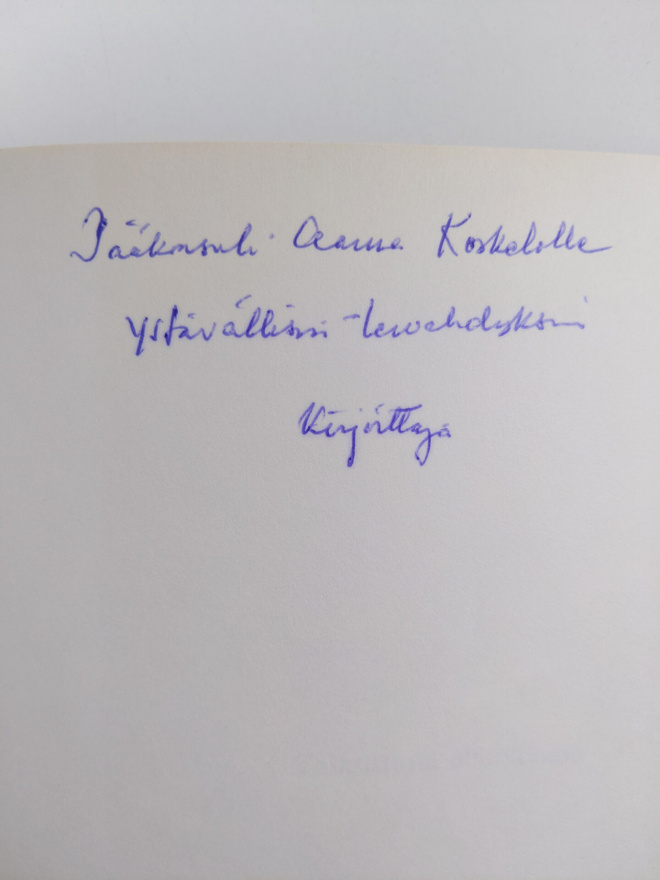 Pääkonsuli Aarne Koskelolle
ystävällisin tervehdyksin
Kirjoittaja